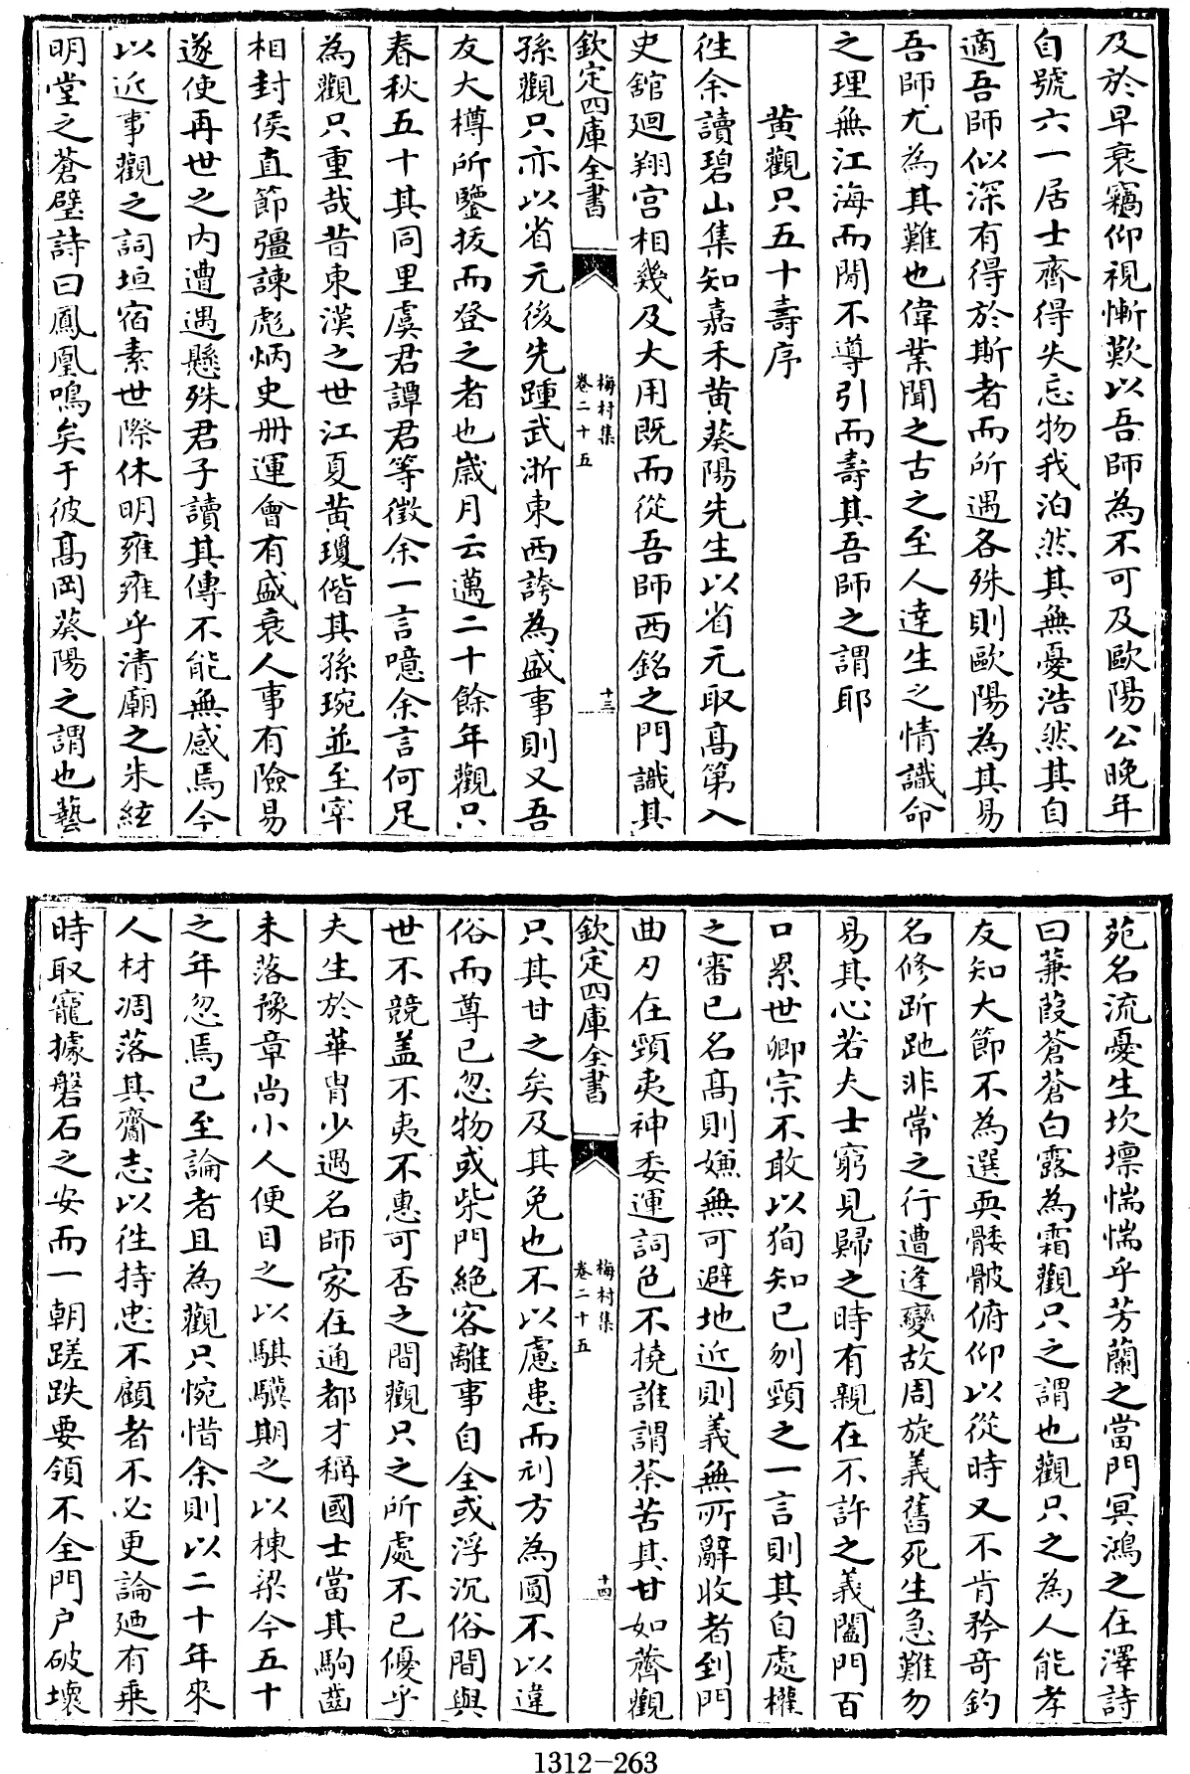 及於早衰竊仰視慚歎以吾師為不可及歐陽公晚年
自號六一居士齊得失忘物我泊然其無憂浩然其自
適吾師似深有得於斯者而所遇各殊則歐陽為其易
吾師尤為其難也偉業聞之古之至人達生之情識命
之理無江海而閒不導引而壽其吾師之謂耶
黄觀只五十壽序
徃余讀碧山集知嘉禾黄葵陽先生以省元取髙第入
史舘廻翔宫相幾及大用既而從吾師西銘之門識其
欽定四庫全書
梅村集
卷二十五
十三
孫觀只亦以省元後先踵武浙東西誇為盛事則又吾
友大樽所鑒拔而登之者也嵗月云邁二十餘年觀只
春秋五十其同里虞君譚君等徵余一言噫余言何足
為觀只重哉昔東漢之世江夏黄瓊偕其孫琬並至宰
相封侯直節彊諫彪炳史册運會有盛衰人事有險易
遂使再世之内遭遇懸殊君子讀其傳不能無感焉今
以近事觀之詞垣宿素世際休明雍雍乎清廟之朱絃
明堂之蒼璧詩曰鳳凰鳴矣于彼髙岡葵陽之謂也藝
苑名流憂生坎壈惴惴乎芳蘭之當門冥鴻之在澤詩
曰蒹葭蒼蒼白露為霜觀只之謂也觀只之為人能孝
友知大節不為選耎骫骳俯仰以從時又不肯矜竒釣
名修跅跎非常之行遭逢變故周旋義舊死生急難勿
易其心若夫士窮見歸之時有親在不許之義闔門百
口累世卿宗不敢以狥知已刎頸之一言則其自處權
之審已名髙則嫌無可避地近則義無所辭收者到門
曲刃在頸夷神委運詞色不撓誰謂荼苦其甘如薺觀
欽定四庫全書
梅村集
卷二十五
十四
只其甘之矣及其免也不以慮患而刓方為圓不以違
俗而尊已忽物或柴門絶客離事自全或浮沉俗間與
世不競盖不夷不惠可否之間觀只之所處不已優乎
夫生於華胄少遇名師家在通都才稱國士當其駒齒
未落豫章尚小人便目之以騏驥期之以棟梁今五十
之年忽焉已至論者且為觀只惋惜余則以二十年來
人材凋落其齎志以徃持忠不顧者不必更論廼有乗
時取寵據磐石之安而一朝蹉跌要領不全門户破壞
1312-263